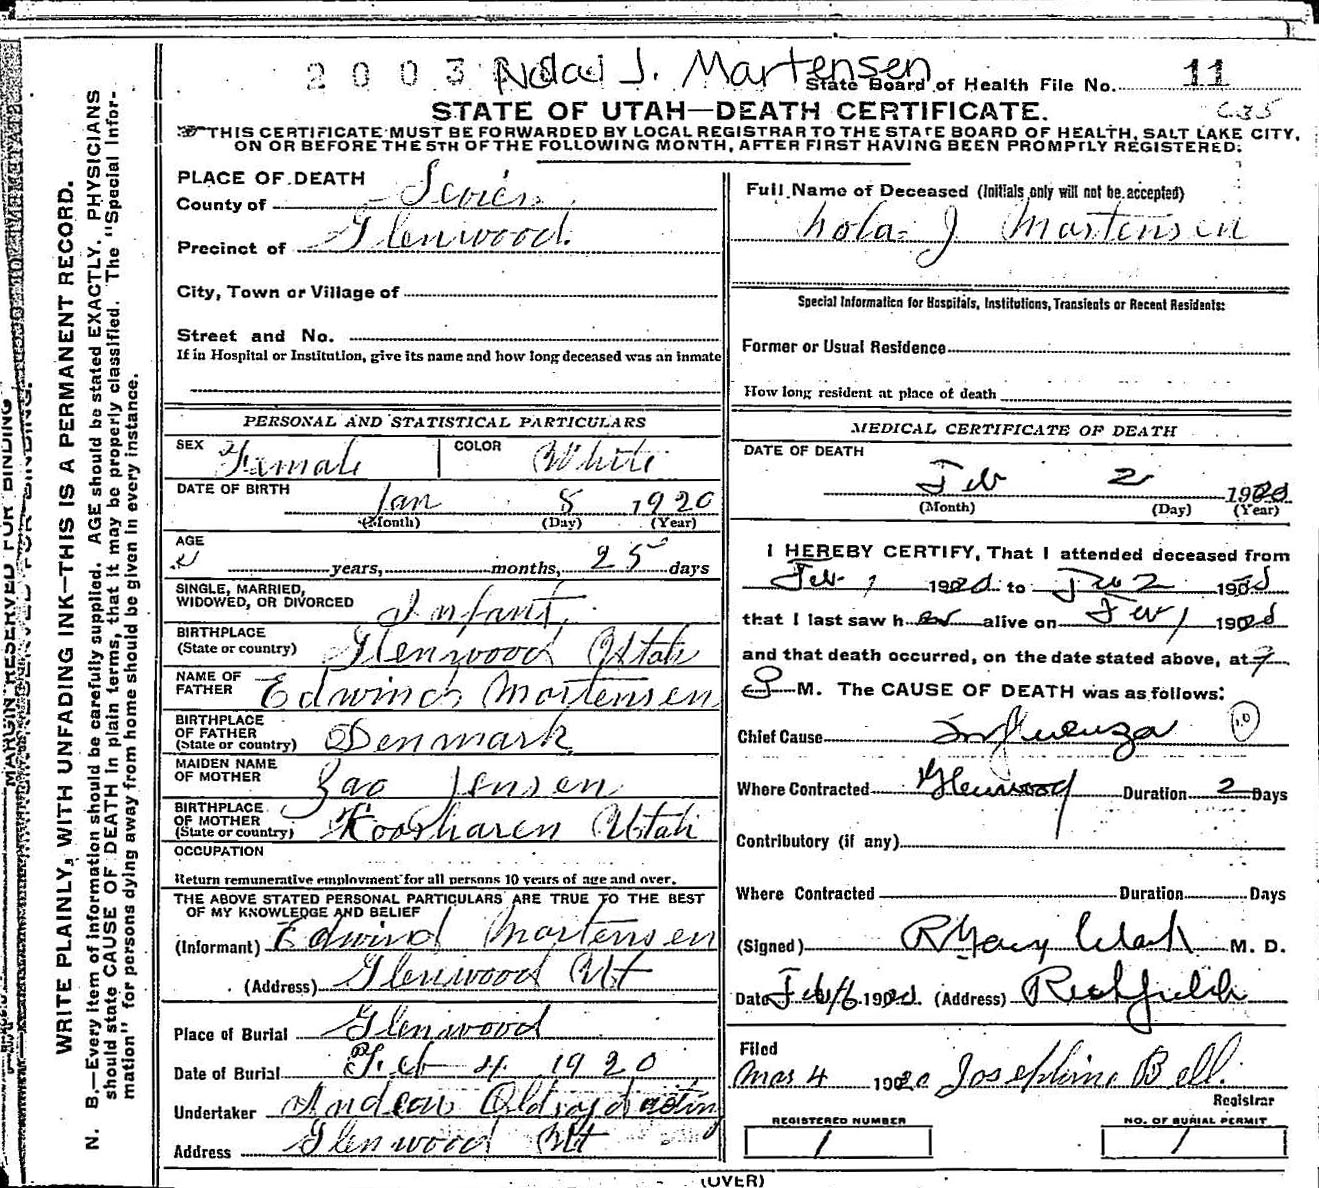 2 0 0 3 Nola J. Martensen
State Board of Health File No. 11
STATE OF UTAH—DEATH CERTIFICATE.
THIS CERTIFICATE MUST BE FORWARDED BY LOCAL REGISTRAR TO THE STATE BOARD OF HEALTH, SALT LAKE CITY,
ON OR BEFORE THE 5TH OF THE FOLLOWING MONTH, AFTER FIRST HAVING BEEN PROMPTLY REGISTERED.
MARGIN RESERVED FOR BINDING
WRITE PLAINLY, WITH UNFADING INK—THIS IS A PERMANENT RECORD.
N. B.—Every item of information should be carefully supplied. AGE should be stated EXACTLY. PHYSICIANS
should state CAUSE OF DEATH in plain terms, that it may be properly classified. The "Special Infor-
mation" for persons dying away from home should be given in every instance.
PLACE OF DEATH
County of Sevier
Precinct of Glenwood
City, Town or Village of
Street and No.
If in Hospital or Institution, give its name and how long deceased was an inmate
PERSONAL AND STATISTICAL PARTICULARS
SEX Female COLOR White
DATE OF BIRTH Jan 8 1920
(Month) (Day) (Year)
AGE
years, months, 25 days
SINGLE, MARRIED,
WIDOWED, OR DIVORCED Infant
BIRTHPLACE
(State or country) Glenwood Utah
NAME OF
FATHER Martensen
BIRTHPLACE
OF FATHER
(State or country) Denmark
MAIDEN NAME
OF MOTHER Jensen
BIRTHPLACE
OF MOTHER
(State or country) Koosharen Utah
OCCUPATION
Return remunerative employment for all persons 10 years of age and over.
THE ABOVE STATED PERSONAL PARTICULARS ARE TRUE TO THE BEST
OF MY KNOWLEDGE AND BELIEF
(Informant) Edwind Martensen
(Address) Glenwood Ut
Place of Burial Glenwood
Date of Burial Feb 4 1920
Undertaker
Address Glenwood Ut
Full Name of Deceased (Initials only will not be accepted)
Nola J Martensen
Special Information for Hospitals, Institutions, Transients or Recent Residents:
Former or Usual Residence
How long resident at place of death
MEDICAL CERTIFICATE OF DEATH
DATE OF DEATH
Feb 2 1920
(Month) (Day) (Year)
I HEREBY CERTIFY, That I attended deceased from
Feb 1 1920 to Feb 2 1920
that I last saw her alive on Feb 1 1920
and that death occurred, on the date stated above, at 9
M. The CAUSE OF DEATH was as follows:
Chief Cause Influenza 10
Where Contracted Glenwood Duration 2 Days
Contributory (if any)
Where Contracted Duration Days
(Signed) M. D.
Date Feb 6 1920 (Address) Richfield
Filed
Mar 4 1920 Josephine Bell
Registrar
REGISTERED NUMBER
1
NO. OF BURIAL PERMIT
1
(OVER)